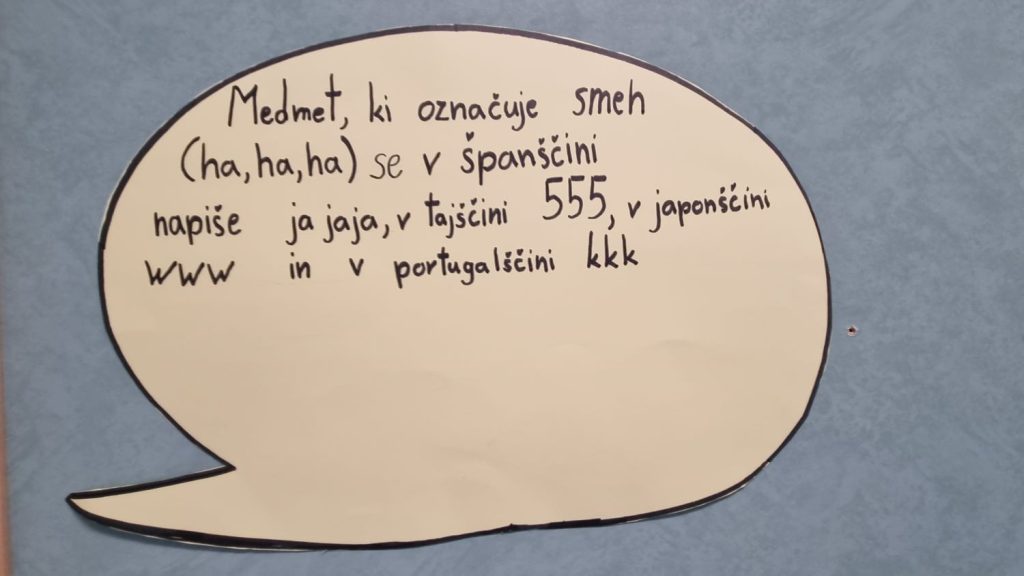 Medmet, ki označuje smeh
(ha, ha, ha) se v španščini
napiše ja jaja, v tajščini 555, v japonščini
www in v portugalščini kkk